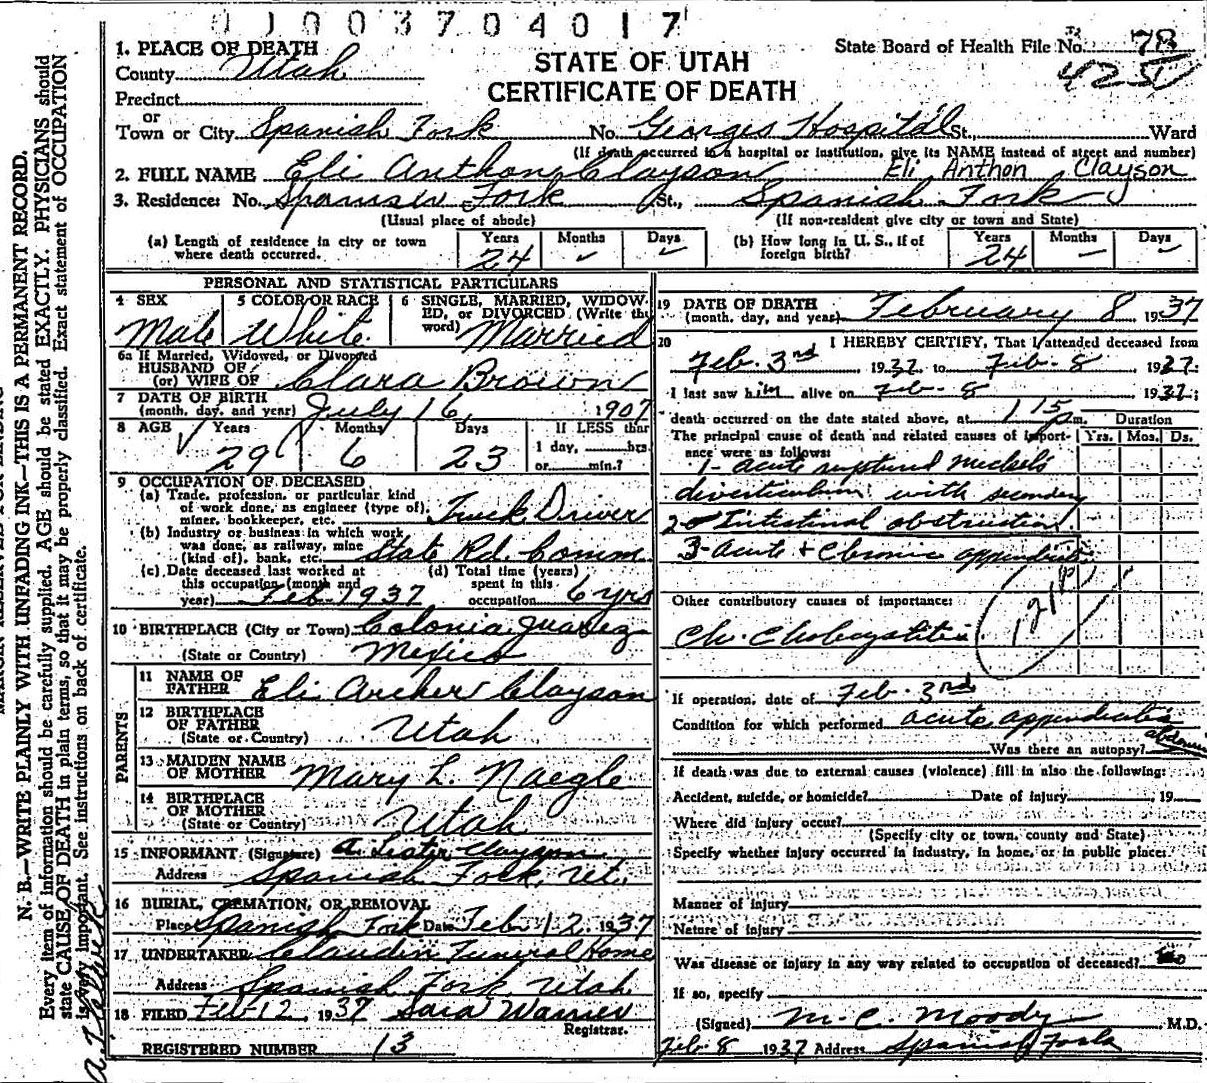 01003704017
1. PLACE OF DEATH
County Utah
STATE OF UTAH
CERTIFICATE OF DEATH
State Board of Health File No. 78
42
Precinct
or
Town or City Spanish Fork No. Georges Hospital St., Ward
(If death occurred in a hospital or institution, give its NAME instead of street and number)
2. FULL NAME Eli Anthon Clayson Eli Anthon Clayson
3. Residence: No. Spanish Fork St., Spanish Fork
(Usual place of abode) (If non-resident give city or town and State)
(a) Length of residence in city or town where death occurred. Years 24 Months - Days -
(b) How long in U. S., if of foreign birth? Years 24 Months - Days -
PERSONAL AND STATISTICAL PARTICULARS
4 SEX Male
5 COLOR OR RACE White
6 SINGLE, MARRIED, WIDOWED, or DIVORCED (Write the word) Married
6a If Married, Widowed, or Divorced
HUSBAND OF
(or) WIFE OF Clara Brown
7 DATE OF BIRTH
(month, day, and year) July 16, 1907
8 AGE Years 29 Months 6 Days 23 If LESS than 1 day, hrs. or min.?
9 OCCUPATION OF DECEASED
(a) Trade, profession, or particular kind
of work done, as engineer (type of),
miner, bookkeeper, etc. Truck Driver
(b) Industry or business in which work
was done, as railway, mine
(kind of), bank, etc. State Rd. Comm.
(c) Date deceased last worked at
this occupation (month and
year) Feb 1937
(d) Total time (years)
spent in this
occupation 6 yrs
10 BIRTHPLACE (City or Town) Colonia Juarez
(State or Country) Mexico
PARENTS
11 NAME OF
FATHER Eli Archer Clayson
12 BIRTHPLACE
OF FATHER
(State or Country) Utah
13 MAIDEN NAME
OF MOTHER Mary L. Naegle
14 BIRTHPLACE
OF MOTHER
(State or Country) Utah
15 INFORMANT (Signature) A. Lester Clayson
Address Spanish Fork, Ut.
16 BURIAL, CREMATION, OR REMOVAL
Place Spanish Fork Date Feb 12 1937
17 UNDERTAKER Claudin Funeral Home
Address Spanish Fork Utah
18 FILED Feb 12 1937 Sara Warner
Registrar.
REGISTERED NUMBER 13
19 DATE OF DEATH
(month, day, and year) February 8 1937
20 I HEREBY CERTIFY, That I attended deceased from
Feb. 3rd 1937 to Feb. 8 1937
I last saw him alive on Feb. 8 1937;
death occurred on the date stated above, at 1 15 m.
The principal cause of death and related causes of importance were as follows: Duration Yrs. Mos. Ds.
1- acute ruptured meckel's
diverticulum with secondary
2 Intestinal obstruction
3- acute + chronic appendicitis
Other contributory causes of importance:
Ch. Cholecystitis
121
If operation, date of Feb. 3rd
Condition for which performed acute appendicitis
Was there an autopsy?
If death was due to external causes (violence) fill in also the following:
Accident, suicide, or homicide? Date of injury , 19
Where did injury occur?
(Specify city or town, county and State)
Specify whether injury occurred in industry, in home, or in public place:
Manner of injury
Nature of injury
Was disease or injury in any way related to occupation of deceased? No
If so, specify
(Signed) M. C. Moody M.D.
Feb. 8 1937 Address Spanish Fork
N. B.—WRITE PLAINLY WITH UNFADING INK—THIS IS A PERMANENT RECORD.
Every item of information should be carefully supplied. AGE should be stated EXACTLY. PHYSICIANS should
state CAUSE OF DEATH in plain terms, so that it may be properly classified. Exact statement of OCCUPATION
is very important. See instructions on back of certificate.